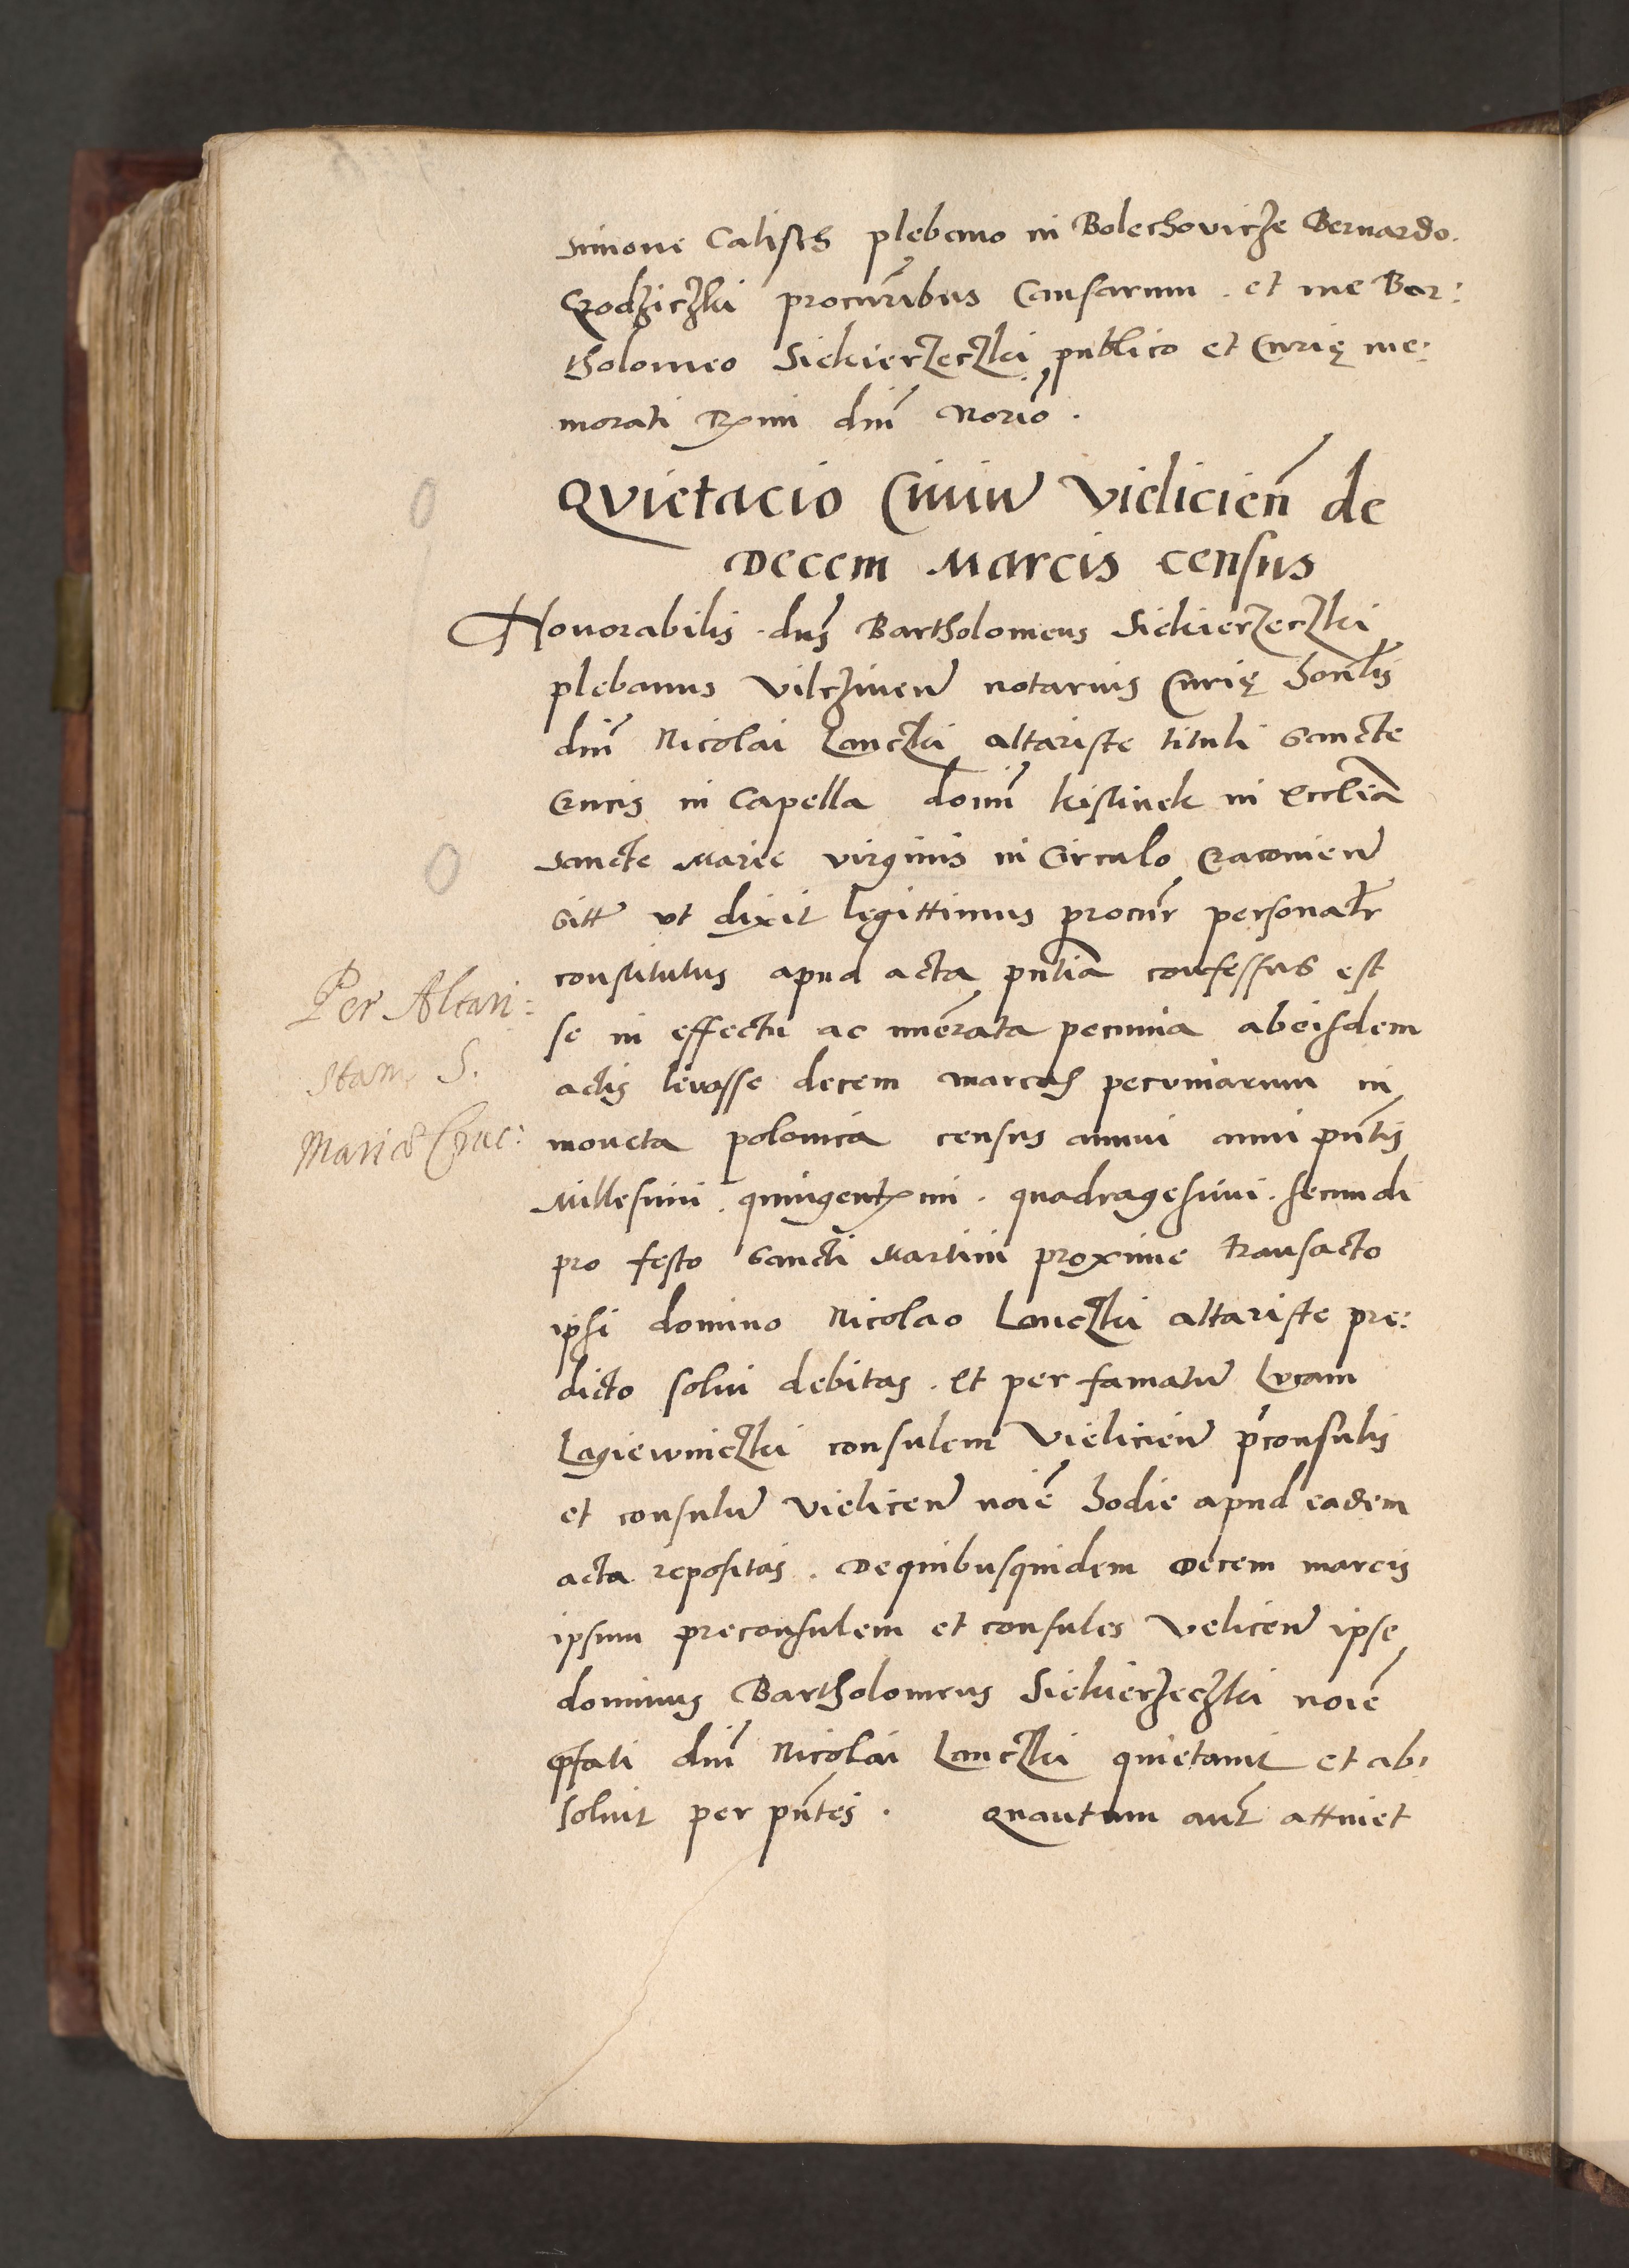 Simone Calisch plebano in Bolechovicze Bernardo.
Grodziczki procurribus Causarum . et me Bar:
tholomeo Siekierzeczki publico et Curię me:
morati Rxmi dni Norio .
Qvietacio Civiū Vielicien̄ de
Decem Marcis census
Honorabilis . dns Bartholomeus Siekierzeczki
plebanus Vilczinen̄ notarius Curię honlis
dni Nicolai Lanczki altariste tituli Sancte
Crucis in Capella domi kistinek in Ecclia
Sancte Marie virginis in Circulo Cracovien̄
Sitt̄ vt dixit legittimus procur personalr
constitutus apud acta pntia confessus est
Per Altari:
se in effectu ac nūerata pecunia ab eisdem
stam S.
actis levasse decem marcas pecuniarum in
Mariæ Crac:
moneta polonica census annui anni pntis
Millesimi . quingentxmi . quadragesimi . secundi
pro festo Sancti Martini proxime transacto
ipsi domino Nicolao Lanczki altariste pre:
dicto solui debitas . et per famatū Lucam
Lagiewniczki consulem Vielicien̄ pconsulis
et consulū Vielicen̄ noīe hodie apud eadem
acta repositas . De quibusquidem Decem marcis
ipsum preconsulem et consules Velicen̄ ipse
dominus Bartholomeus Siekierzeczki noīe
pfati dni Nicolai Lanczki quietauit et ab:
soluit per pntes . Quantum aut attinet